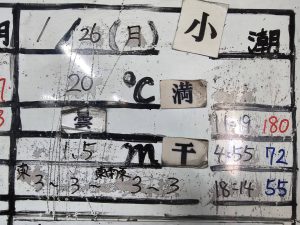 1/26(月) 小潮
20℃ 満 11:19 180
曇
1.5m 干 4:55 72
東3~3~ 3~3 18:14 55